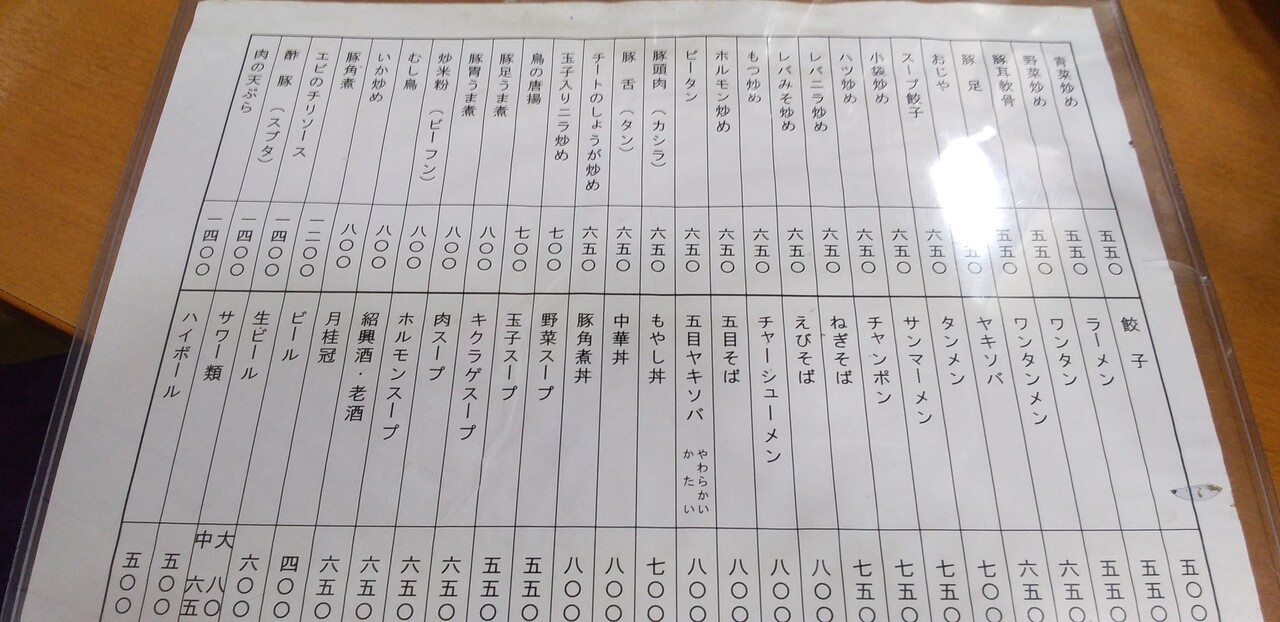 青菜炒め 五五〇
野菜炒め 五五〇
豚耳軟骨 五五〇
豚足 五五〇
おじや 五五〇
スープ餃子 六五〇
小袋炒め 六五〇
ハツ炒め 六五〇
レバニラ炒め 六五〇
レバみそ炒め 六五〇
もつ炒め 六五〇
ホルモン炒め 六五〇
ピータン 六五〇
豚頭肉(カシラ) 六五〇
豚舌(タン) 六五〇
チートのしょうが炒め 六五〇
玉子入りニラ炒め 七〇〇
鳥の唐揚 七〇〇
豚足うま煮 八〇〇
豚胃うま煮 八〇〇
炒米粉(ビーフン) 八〇〇
むし鳥 八〇〇
いか炒め 八〇〇
豚角煮 一二〇〇
エビのチリソース 一四〇〇
酢豚(スブタ) 一四〇〇
肉の天ぷら 一四〇〇
餃子 五〇〇
ラーメン 五五〇
ワンタン 五五〇
ワンタンメン 六五〇
ヤキソバ 六五〇
タンメン 七〇〇
サンマーメン 七五〇
チャンポン 七五〇
ねぎそば 七五〇
えびそば 八〇〇
チャーシューメン 八〇〇
五目そば 八〇〇
五目ヤキソバ やわらかい かたい 八〇〇
もやし丼 七〇〇
中華丼 八〇〇
豚角煮丼 八〇〇
野菜スープ 五五〇
玉子スープ 五五〇
キクラゲスープ 六五〇
肉スープ 六五〇
ホルモンスープ 六五〇
紹興酒・老酒 六五〇
月桂冠 四〇〇
ビール 六〇〇
生ビール 大 八〇 中 六五
サワー類 五〇〇
ハイボール 五〇〇